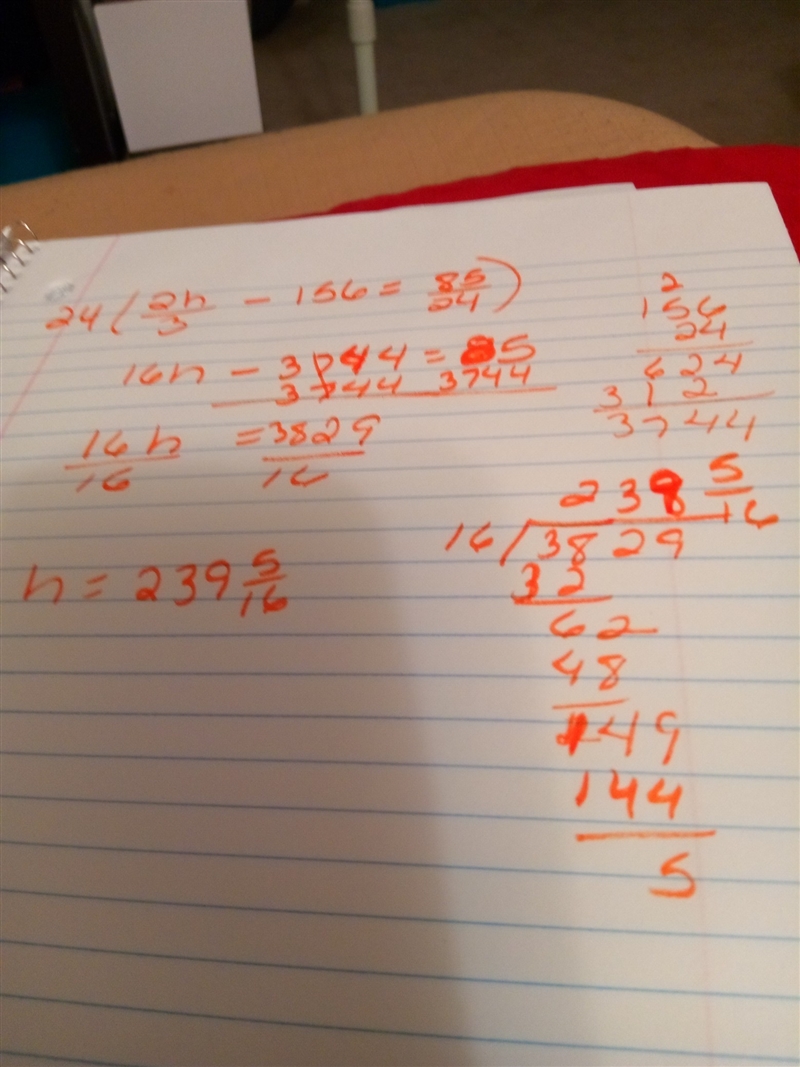 24 ( 2n/3 - 156 = 85/24 )
16n - 3744 = 85
3744 3744
16n/16 = 3829/16
n = 239 5/16
2
156
24
624
312
3744
238 5/16
16 / 3829
32
62
48
149
144
5